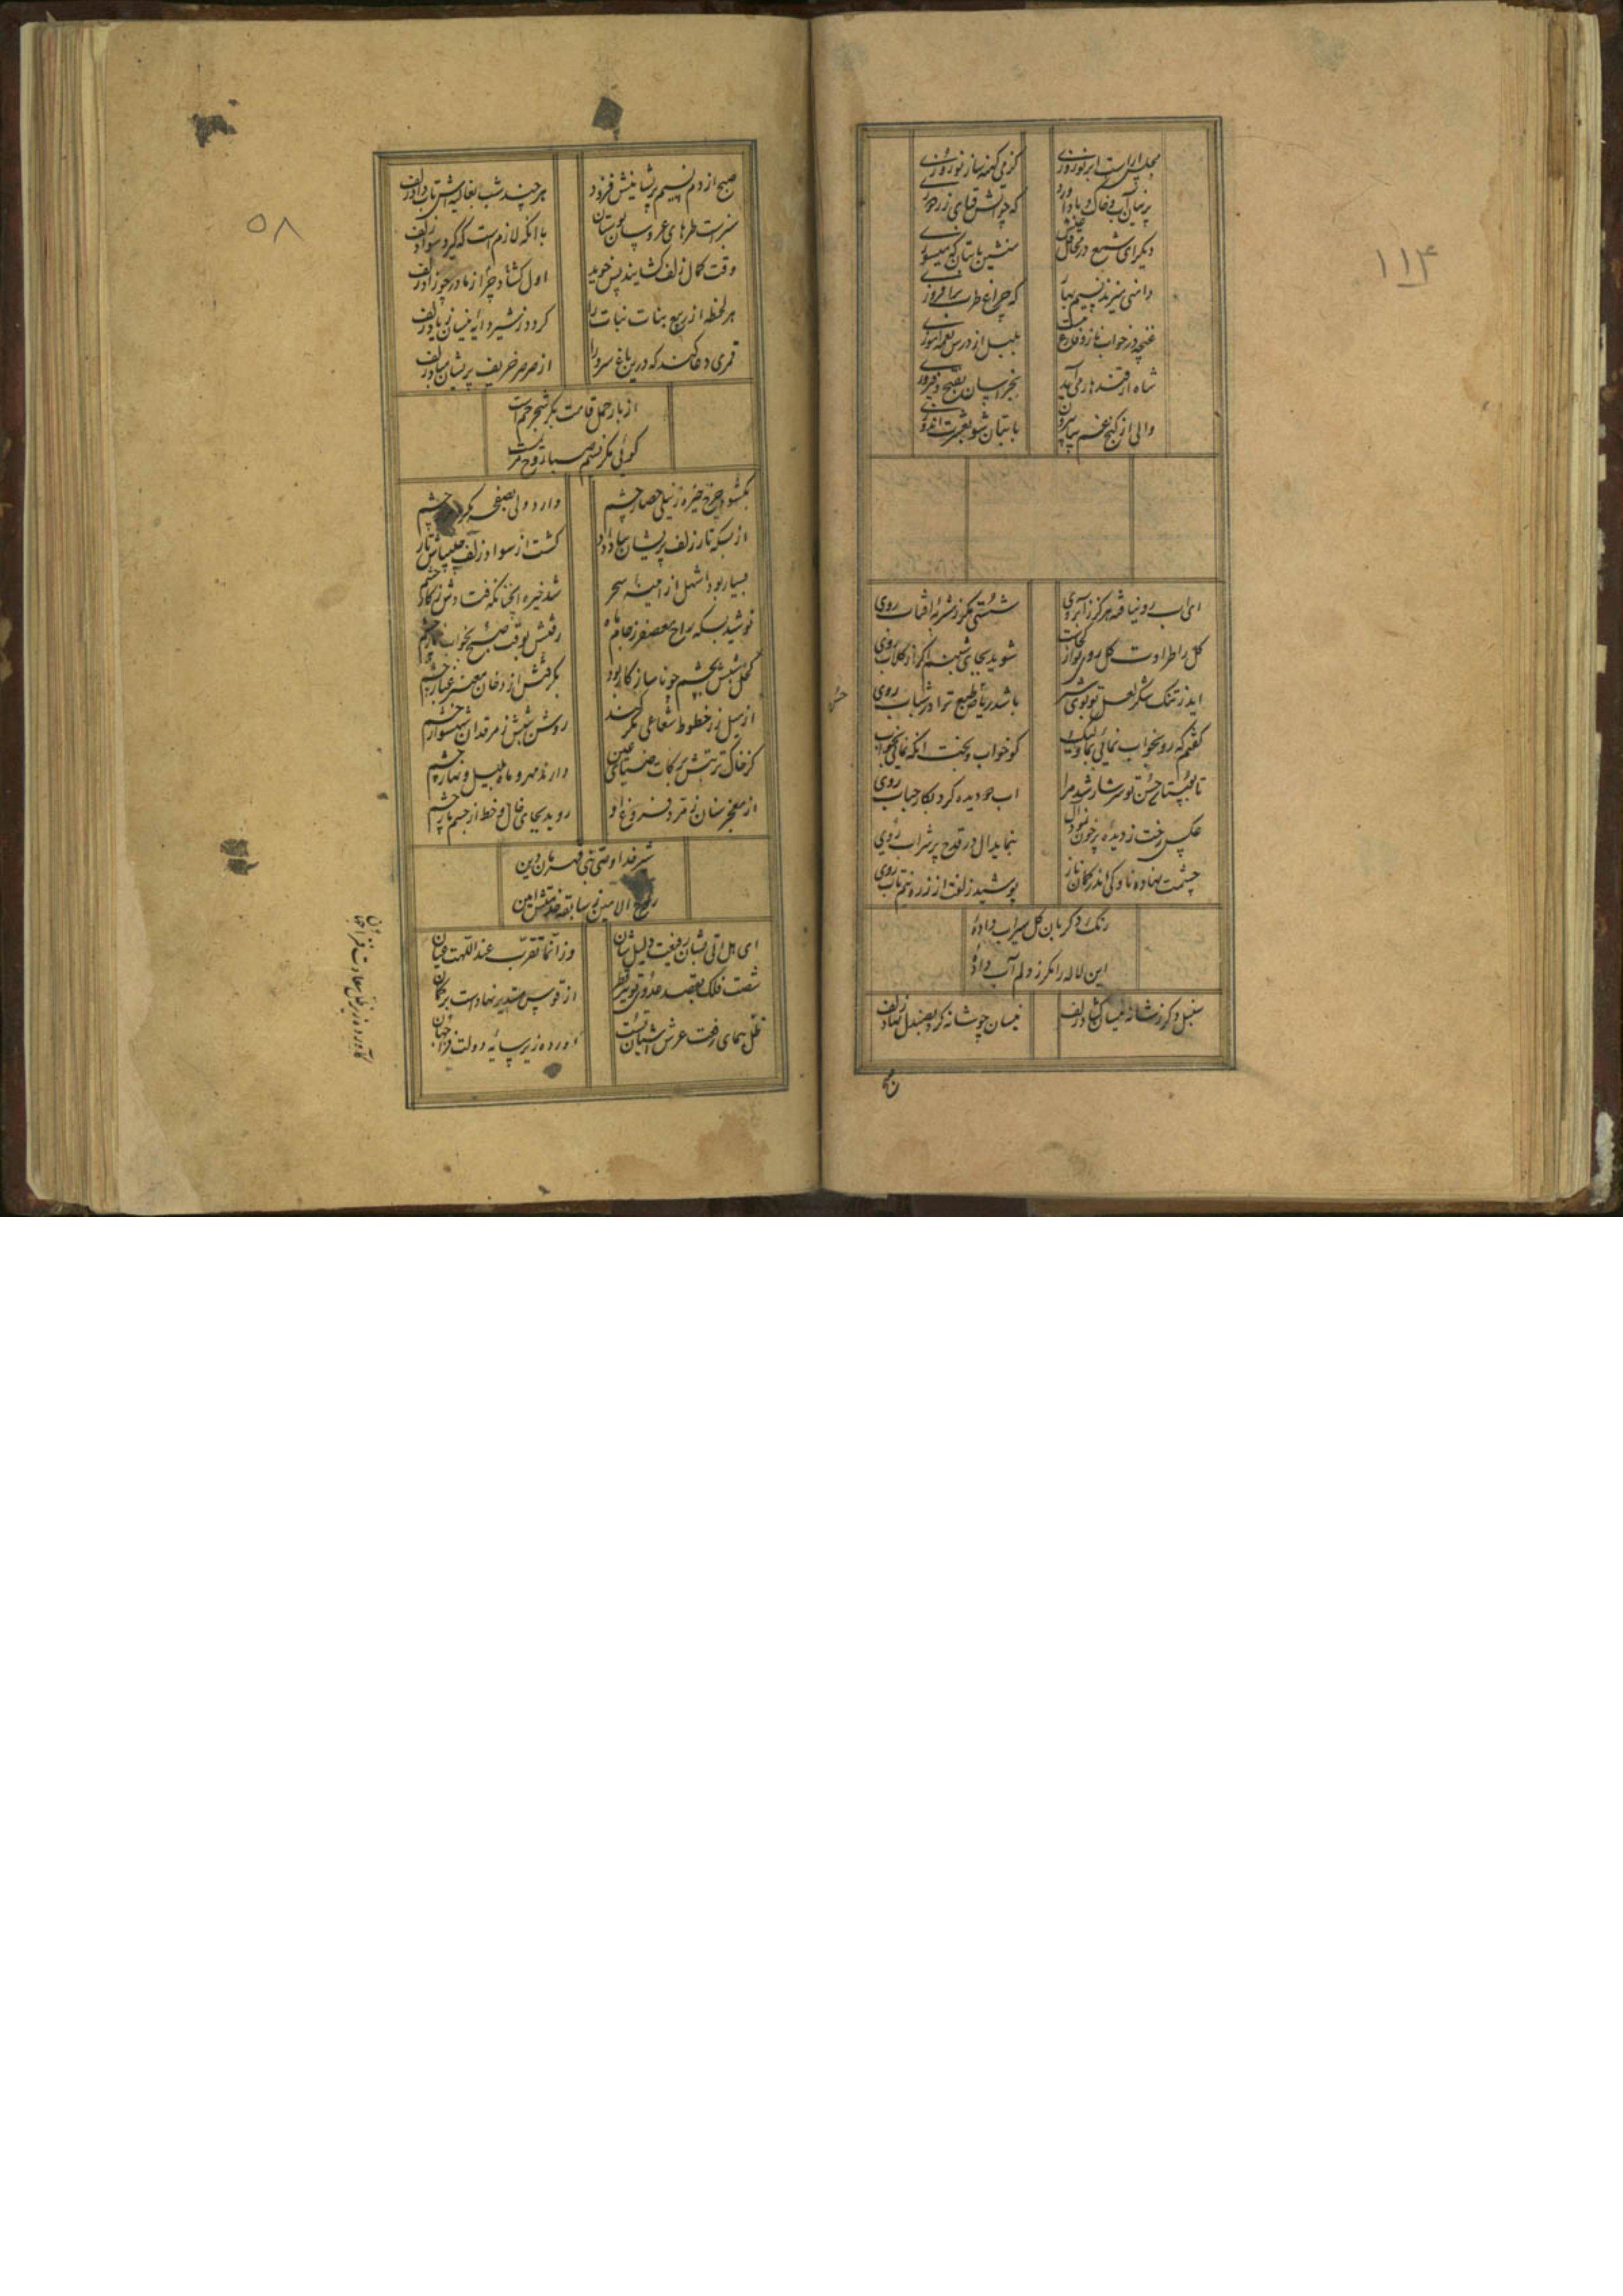 ۱۱۴
مجلس آراست ابر نوروزی
کز می کهنه ساز نوروزی
پرنیان آب و خاک و باد آورد
که چو آتش قبای زردوزی
دیگر ای شمع در محافل
منشین با بتان که میسوزی
دامنی میزند نسیم بهار
که چراغ طرب برافروزی
غنچه در خواب ناز و فارغ
بلبل از درس نغمه آموزی
شاه از قندهار می آید
بخراسان بفتح و فیروزی
والی از کنج غم بیا بیرون
با بتان شو بعشرت اندوزی
ای آب رو نیافته هرگز ز آبروی
شستی مگر ز شربه آفتاب روی
گل را طراوت گل روی تو از کجاست
شوید بجای شبنم اگر از گلاب روی
ای ز تنگ شکر لعل تو بوی شیر
باشد ریاض طبع ترا در شباب روی
گفتم که رو بخواب نمائی بما ولیک
کو خواب و بخت آنکه نمائی بخواب روی
تا به پستاری حسن تو سرشار شد مرا
آب دو دیده کرد بکار حباب روی
عکس رخت ز دیده پرخون نمود دل
بنماید ال در قدح پر شراب روی
چشمت نهاده ناوکی اندر کمان ناز
پوشید زلفت از زره نیم تاب روی
رنگ دگر بآن گل سیراب دادهٔ
این لاله را مگر ز دلم آب دادهٔ
سنبل دگر ز شانه نیسان گشاد زلف
نیسان چو شانه کرد بصد دل نهاد زلف
صبح
۵۸
صبح از دم نسیم پریشانیش فزود
هرچند شب بغالیه اش تاب داد زلف
سبز است طرهای عروسان بوستان
با آنکه لازم است که گیرد سواد زلف
وقت کمال زلف گشایند پس خوید
اول گشاد چرا ز مادر چو زاد زلف
هر لحظه از ربیع بنات نبات را
گردد ز شیر دایهٔ نیسان زیاد زلف
قمری دعا کند که درین باغ سرو را
از صرصر خریف پریشان مباد زلف
از بار حمل قامت بکر شجر خم است
گوئی مگر نسیم صبا زوج مریم است
بگشود چرخ خیره ز نیلی حصار چشم
وارد ولی بصفحه بکر چشم
از بسکه تار زلف پریشان بباد داد
گشت از سواد زلف چلیپاش تار چشم
بسیار بود اشهل از آمینهٔ سحر
شد خیره آنچنانکه فتادش ز کار چشم
نوشید بسکه راح معصفر ز جام ماه
رفتش بوقت صبح بخواب خمار چشم
کحل شبش بچشم چو ناساز کار بود
بگرفتش از دخان معنبر غبار چشم
از میل زر خطوط شعاعی مگر کند
روشن شبش ز مرقد آن شهسوار چشم
کز خاک تربتش برکات ضیای عین
دارند مهر و ماه بلیل و نهار چشم
از معجز سنان زمرد فروغ او
روید بجای خال و خط از جسم مار چشم
شیر خدا وصی نبی قهرمان دین
روح الامین ز سابقه خدمتش امین
ای هل اتی بشان رفیعت دلیل شان
وز انما تقرب عند اللهت عیان
شصت فلک بقصد عدوی تو تیر قطر
از قوس مستدیر نهادست بر کمان
ظل همای رفعت عرش آشیان تست
آورده زیر سایهٔ دولت فراجهان
کآورده زیر ظل سعادت فراجهان